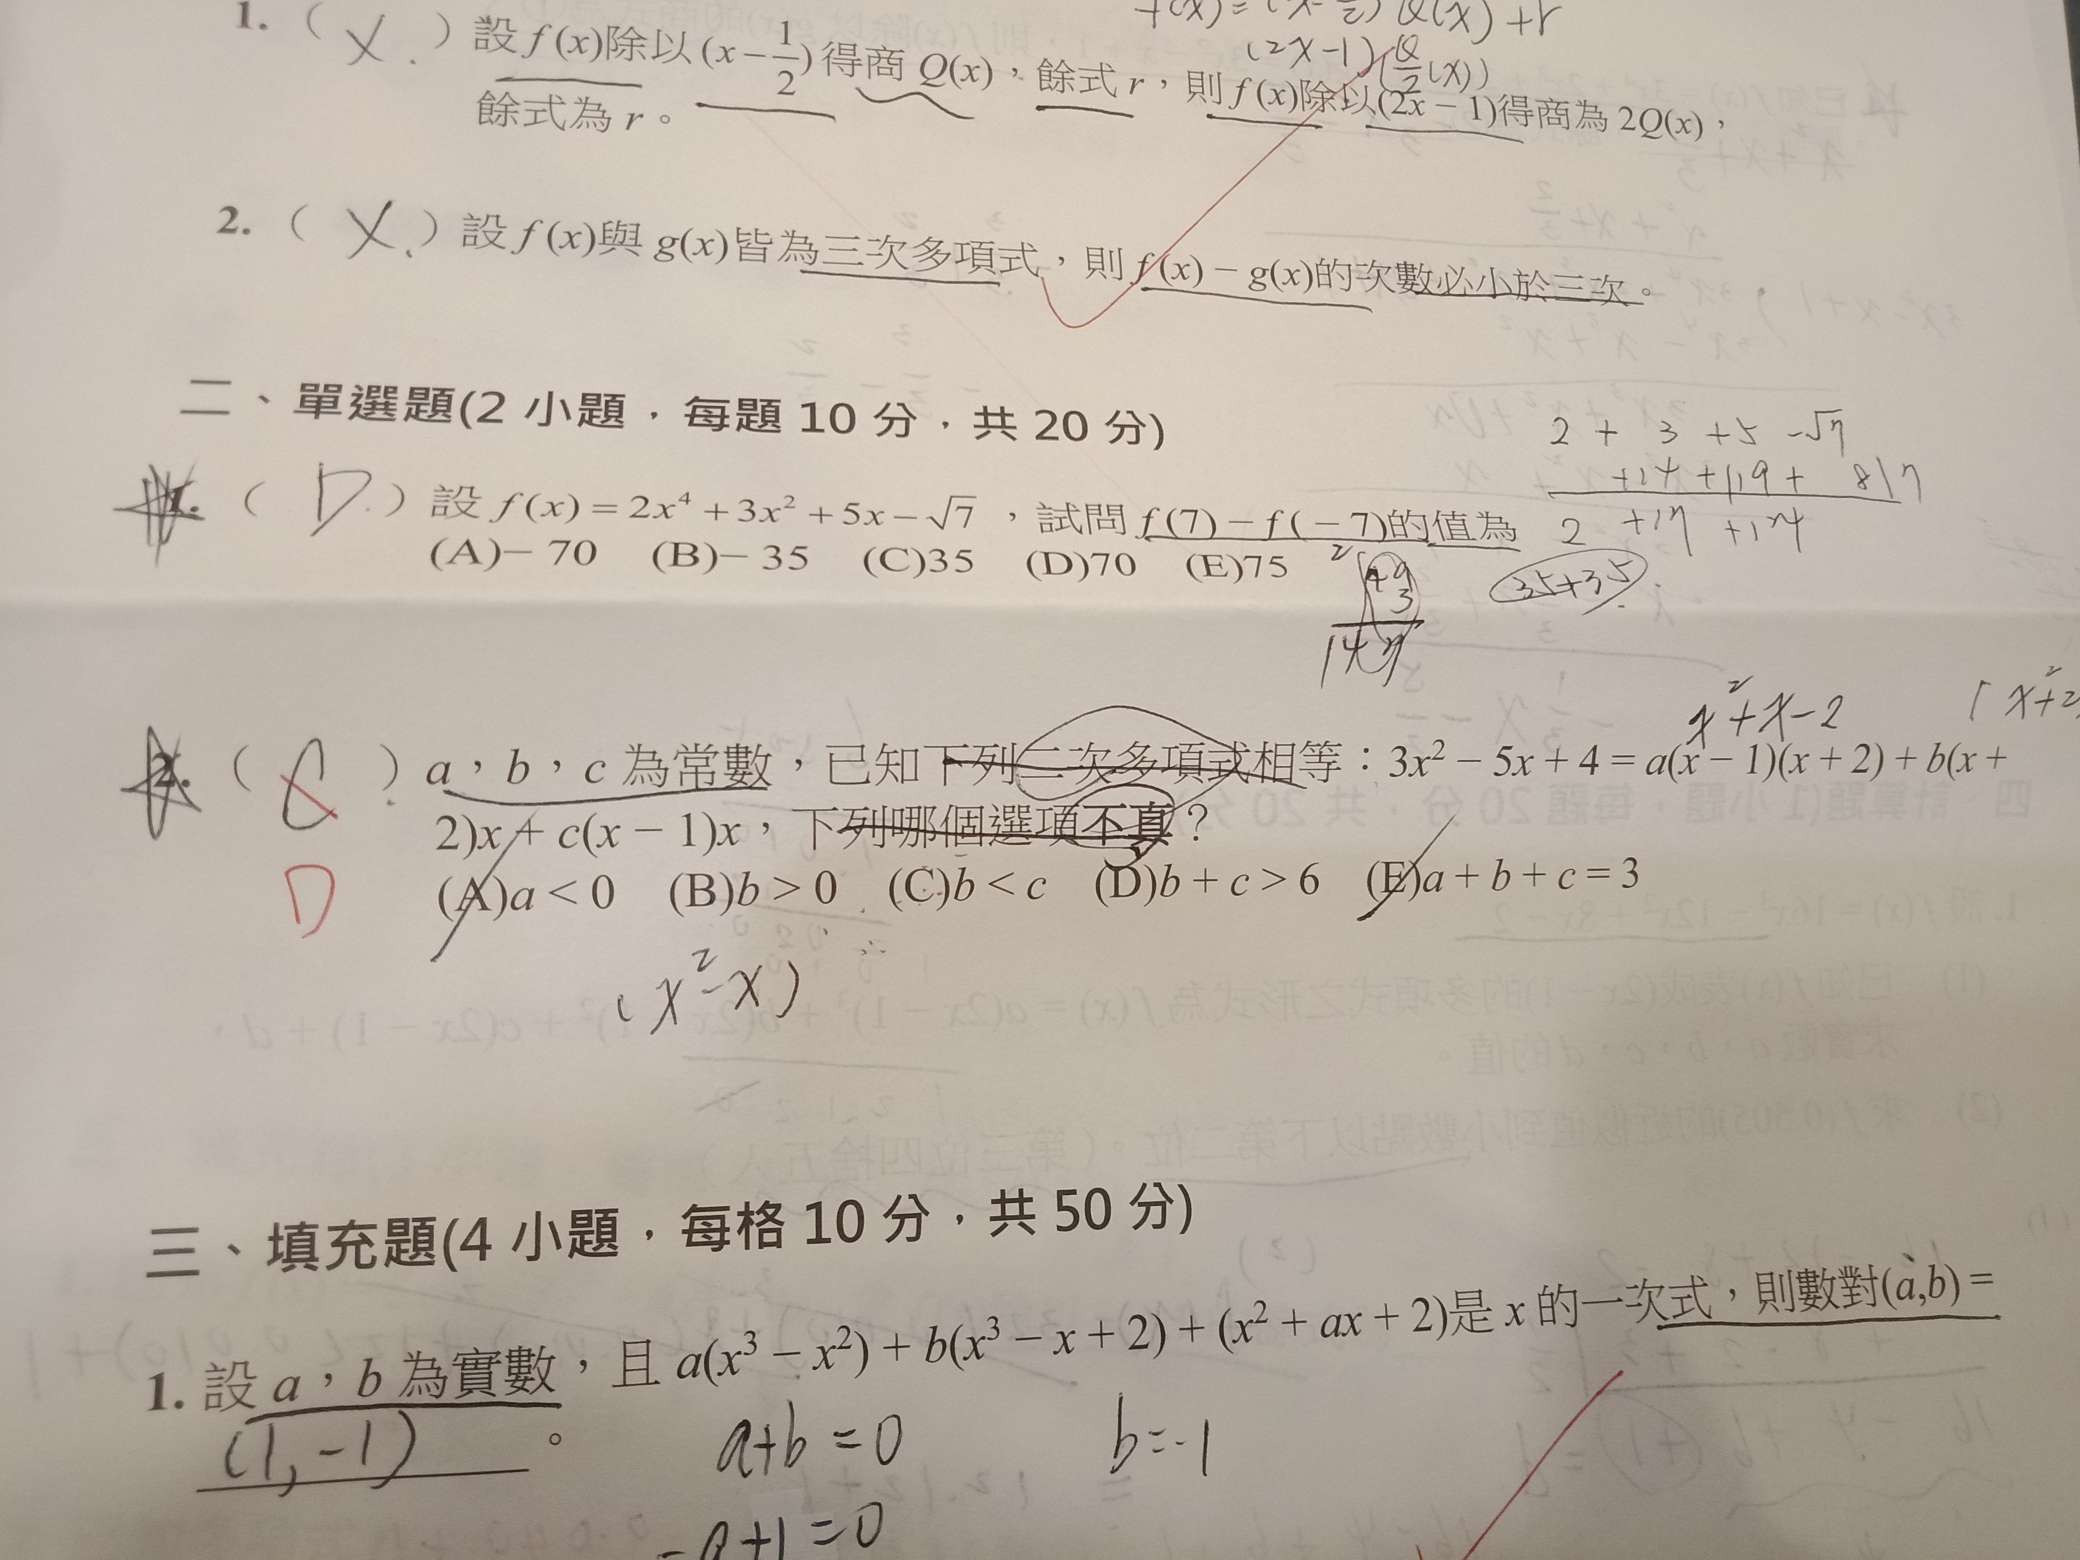 f(x) = (x-1/2) Q(x) + r
(2x-1)(Q/2(x))
1. ( X. ) 設 f(x)除以(x-1/2)得商 Q(x)，餘式 r，則 f(x)除以(2x-1)得商為 2Q(x)，
餘式為 r。
2. ( X. ) 設 f(x)與 g(x)皆為三次多項式，則 f(x)-g(x)的次數必小於三次。
二、單選題(2 小題，每題 10 分，共 20 分)
2 + 3 +5 -√7
+14 +119 + 817
2 +17 +124
1. ( D. ) 設 f(x)=2x⁴+3x²+5x-√7，試問 f(7)-f(-7)的值為
(A)-70 (B)-35 (C)35 (D)70 (E)75
2
49
3
147
35+35
x²+x-2
(x²+2
2. ( C ) a，b，c 為常數，已知下列二次多項式相等：3x²-5x+4=a(x-1)(x+2)+b(x+
2)x+c(x-1)x，下列哪個選項不真？
D
(A)a<0 (B)b>0 (C)b<c (D)b+c>6 (E)a+b+c=3
(x²-x)
三、填充題(4 小題，每格 10 分，共 50 分)
1. 設 a，b 為實數，且 a(x³-x²)+b(x³-x+2)+(x²+ax+2)是 x 的一次式，則數對(a,b)=
(1,-1)。
a+b=0 b=-1
-a+1=0